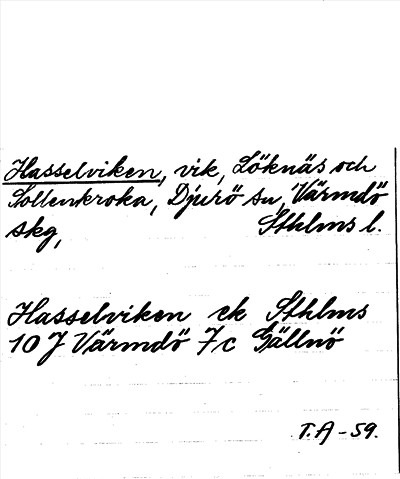 Hasselviken, vik, Löknäs och
Sollenkroka, Djurö sn, Värmdö
skg, Sthlms l.
Hasselviken ek Sthlms
10 J Värmdö 7c Gällnö
T.A - 59.